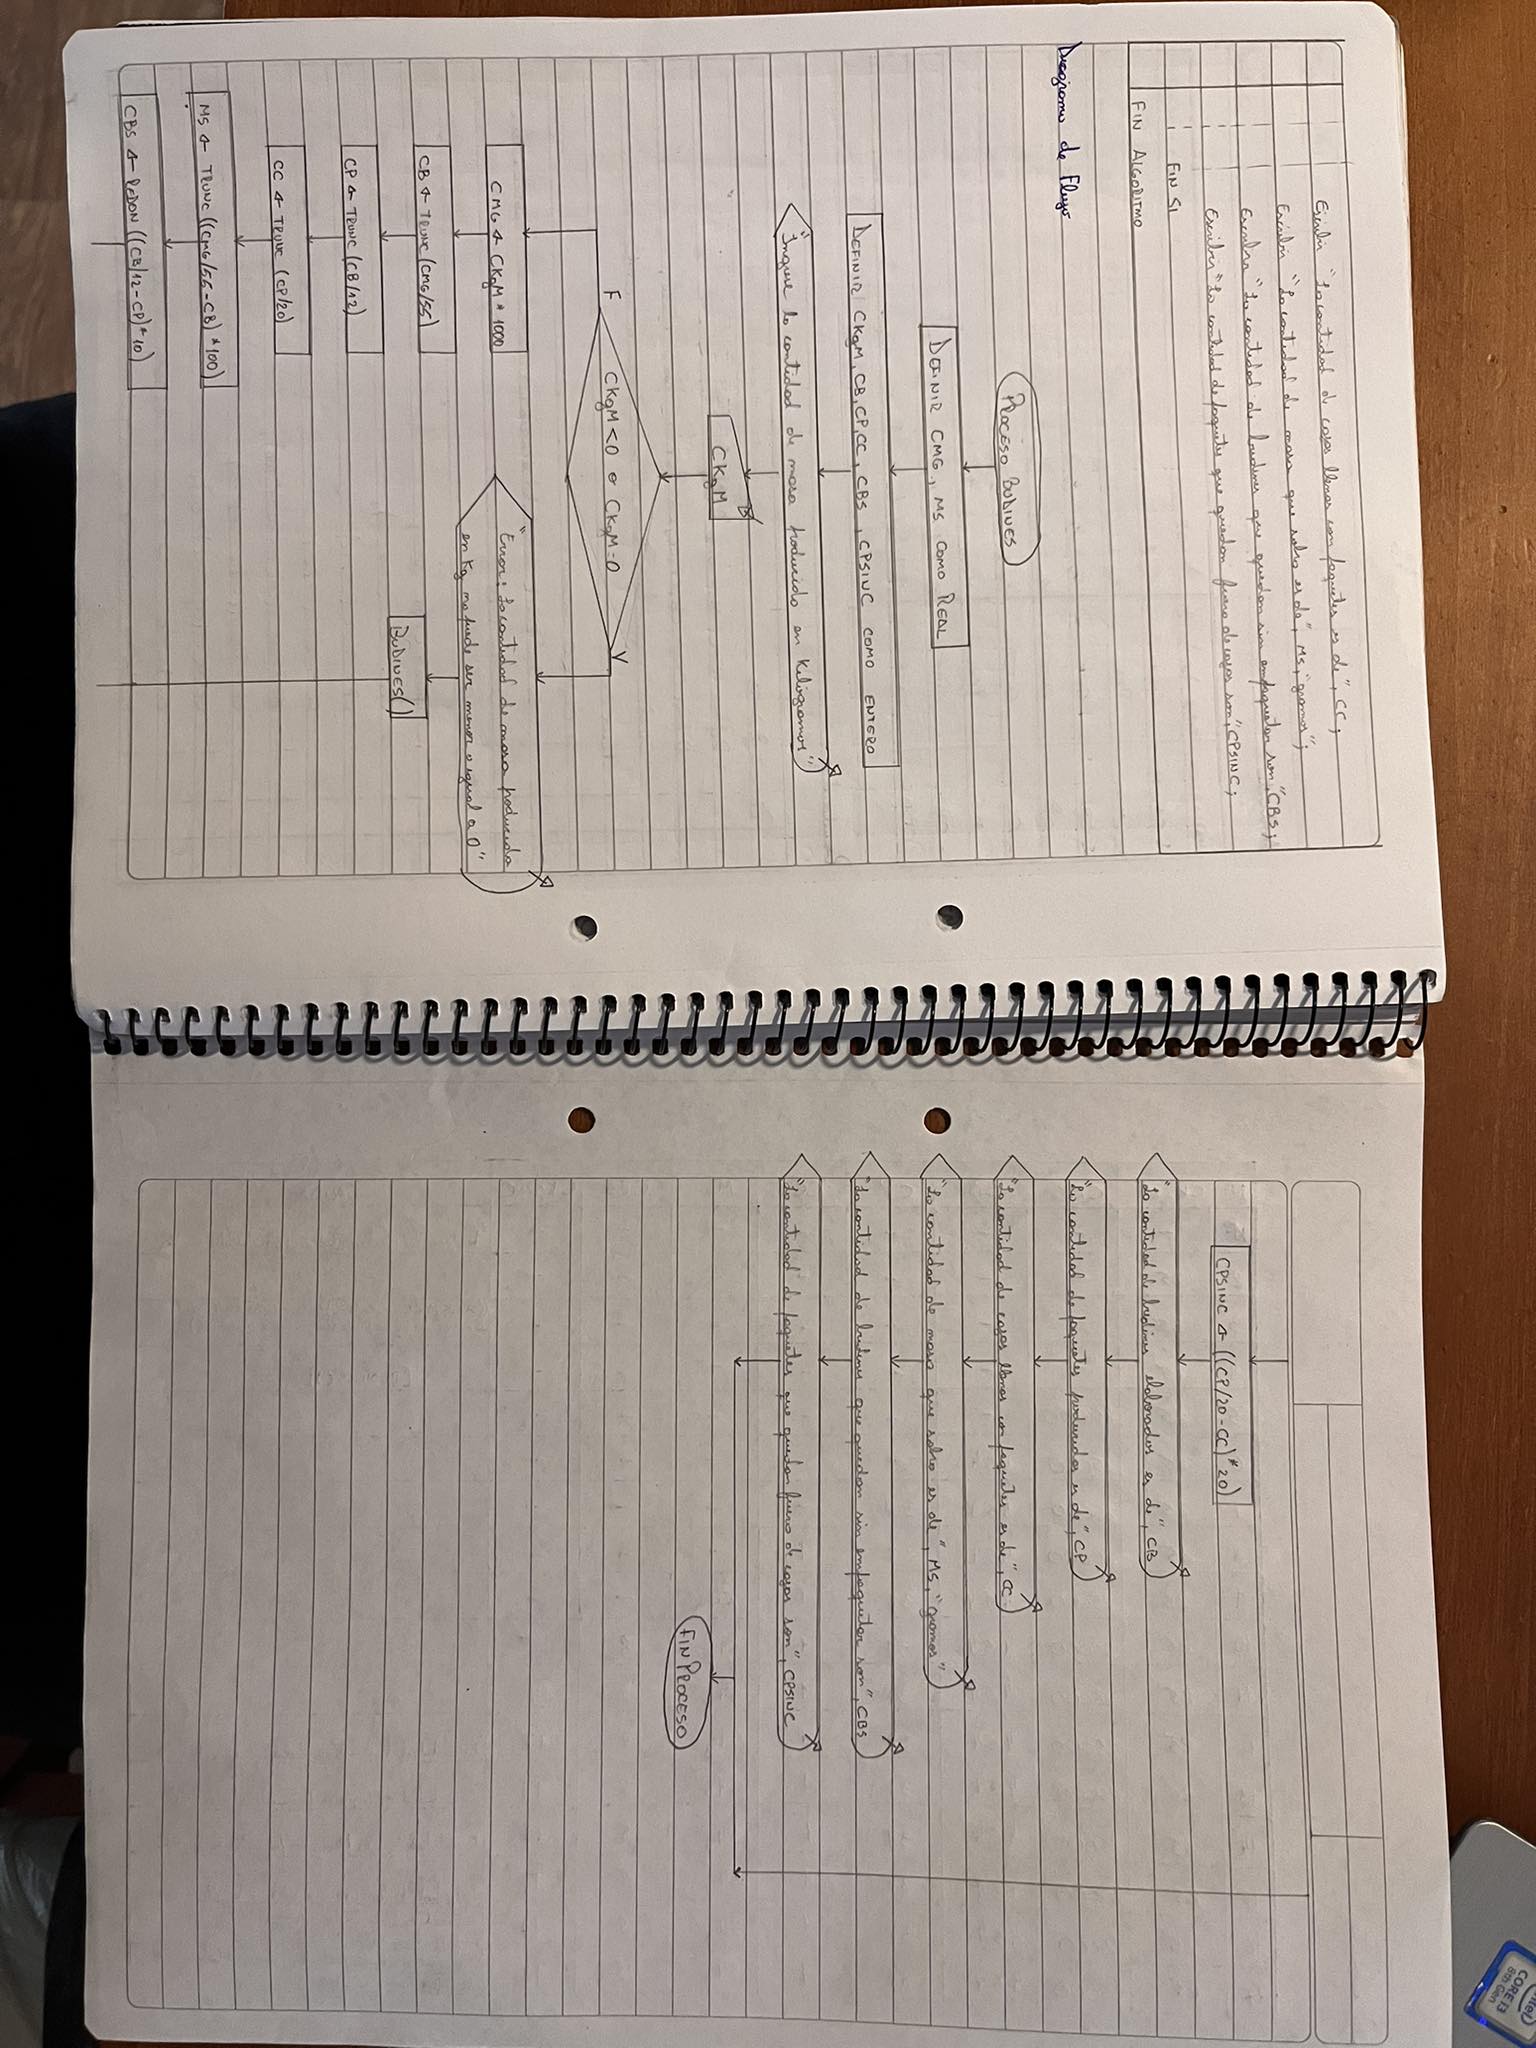 Escribir "La cantidad de cajas llenas con paquetes es de", CC;
Escribir "La cantidad de masa que sobra es de", MS, "gramos";
Escribir "La cantidad de budines que quedan sin empaquetar son", CBS;
Escribir "La cantidad de paquetes que quedan fuera de cajas son", CPSINC;
FIN SI
FIN ALGORITMO
Diagrama de Flujo
PROCESO BUDINES
DEFINIR CMG, MS COMO REAL
DEFINIR CKgM, CB, CP, CC, CBS, CPSINC COMO ENTERO
"Ingrese la cantidad de masa producida en Kilogramos"
CKgM
CKgM<0 o CKgM=0
F
V
CMG ← CKgM * 1000
"Error: La cantidad de masa producida
en Kg no puede ser menor o igual a 0"
CB ← TRUNC (CMG/55)
BUDINES()
CP ← TRUNC (CB/12)
CC ← TRUNC (CP/20)
MS ← TRUNC ((CMG/55-CB) * 100)
CBS ← REDON ((CB/12-CP) * 10)
CPSINC ← ((CP/20-CC) * 20)
"La cantidad de budines elaborados es de", CB
"La cantidad de paquetes producidos es de", CP
"La cantidad de cajas llenas con paquetes es de", CC
"La cantidad de masa que sobra es de", MS, "gramos"
"La cantidad de budines que quedan sin empaquetar son", CBS
"La cantidad de paquetes que quedan fuera de cajas son", CPSINC
FIN PROCESO
CORE i3
8th Gen